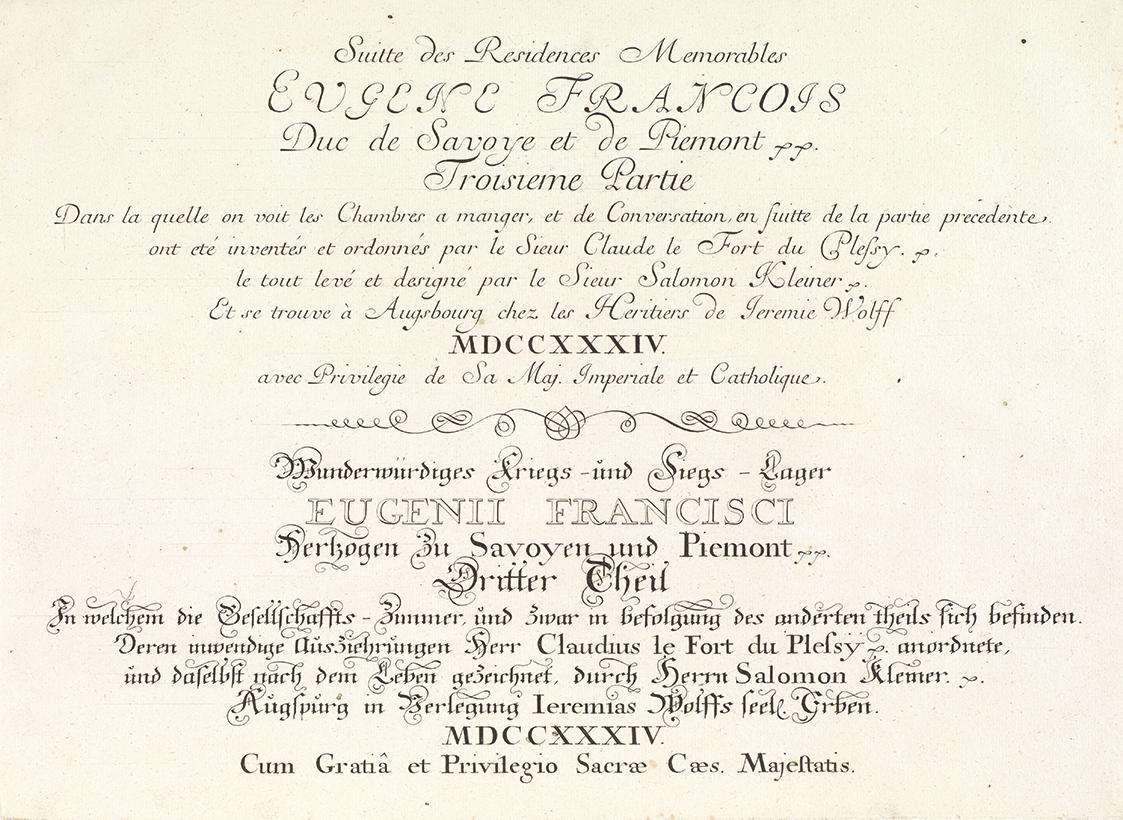 Suitte des Residences Memorables
EUGENE FRANCOIS
Duc de Savoye et de Piemont pp.
Troisieme Partie
Dans la quelle on voit les Chambres a manger, et de Conversation, en ſuitte de la partie precedente.
ont eté inventés et ordonnés par le Sieur Claude le Fort du Pleſsy. p.
le tout levé et designé par le Sieur Salomon Kleiner p.
Et se trouve à Augsbourg chez les Heritiers de Ieremie Wolff
MDCCXXXIV.
avec Privilegie de Sa Maj. Imperiale et Catholique.
Wunderwürdiges Kriegs-und Siegs-Lager
EUGENII FRANCISCI
Hertzogen Zu Savoyen und Piemont pp.
Dritter Theil
In welchem die Geſellſchaffts-Zimmer, und zwar in befolgung des anderten theils ſich befinden.
Deren inwendige Ausziehrungen Herr Claudius le Fort du Pleſsy p. anordnete,
und daſelbſt nach dem Leben gezeichnet, durch Herrn Salomon Kleiner. p.
Augſpurg in Verlegung Ieremias Wolffs ſeel. Erben.
MDCCXXXIV.
Cum Gratiâ et Privilegio Sacræ Cæs. Majeſtatis.